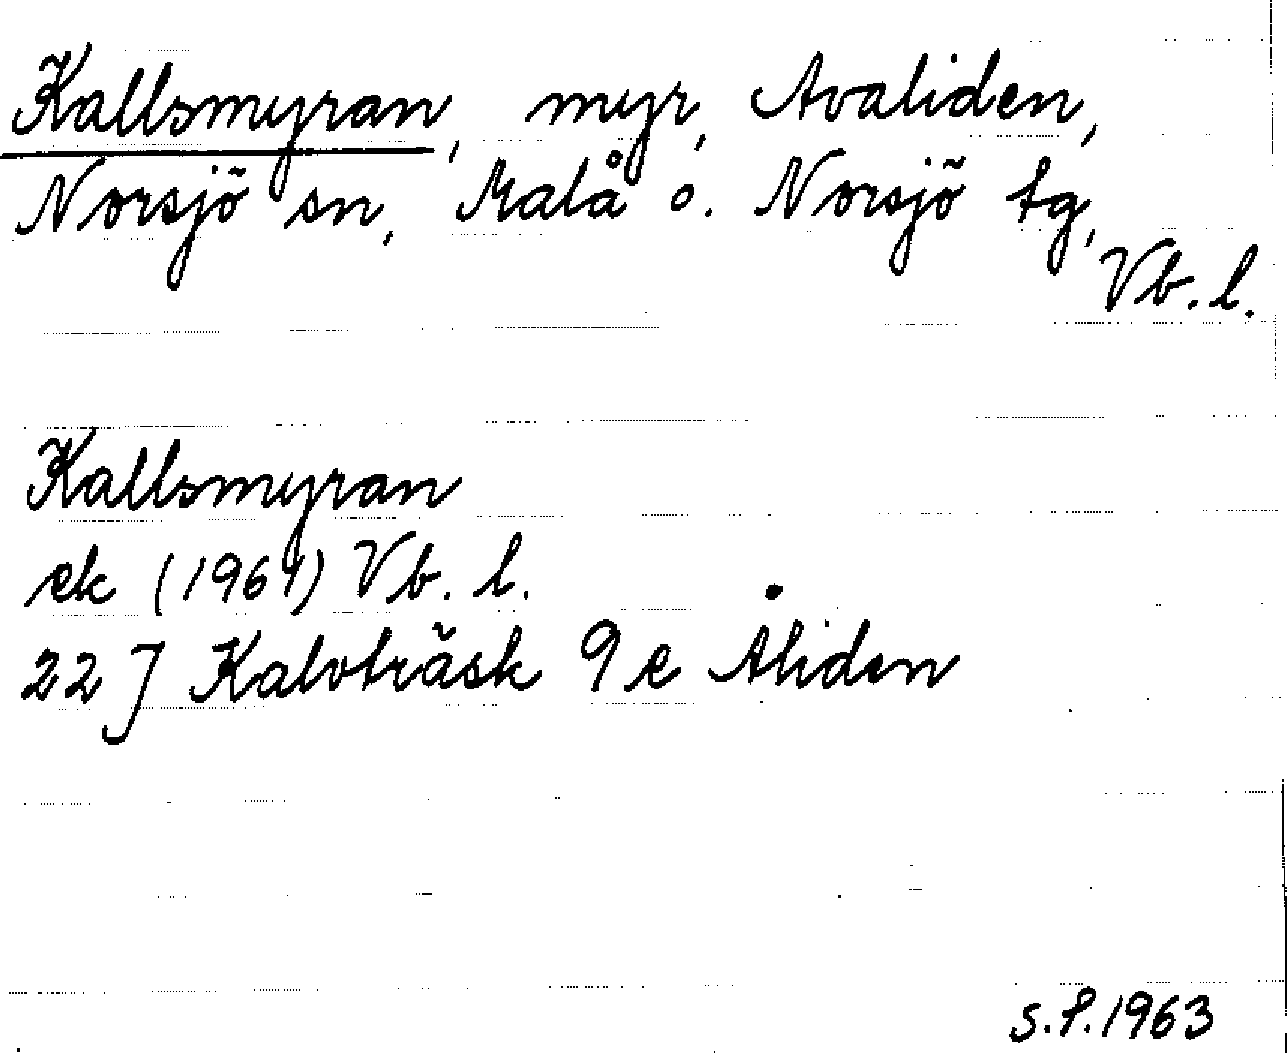 Kallsmyran, myr, Avaliden,
Norsjö sn, Malå o. Norsjö tg,
Vb. l.
Kallsmyran
ek (1961) Vb. l.
22 J Kalvträsk 9 e Åliden
s.P. 1963